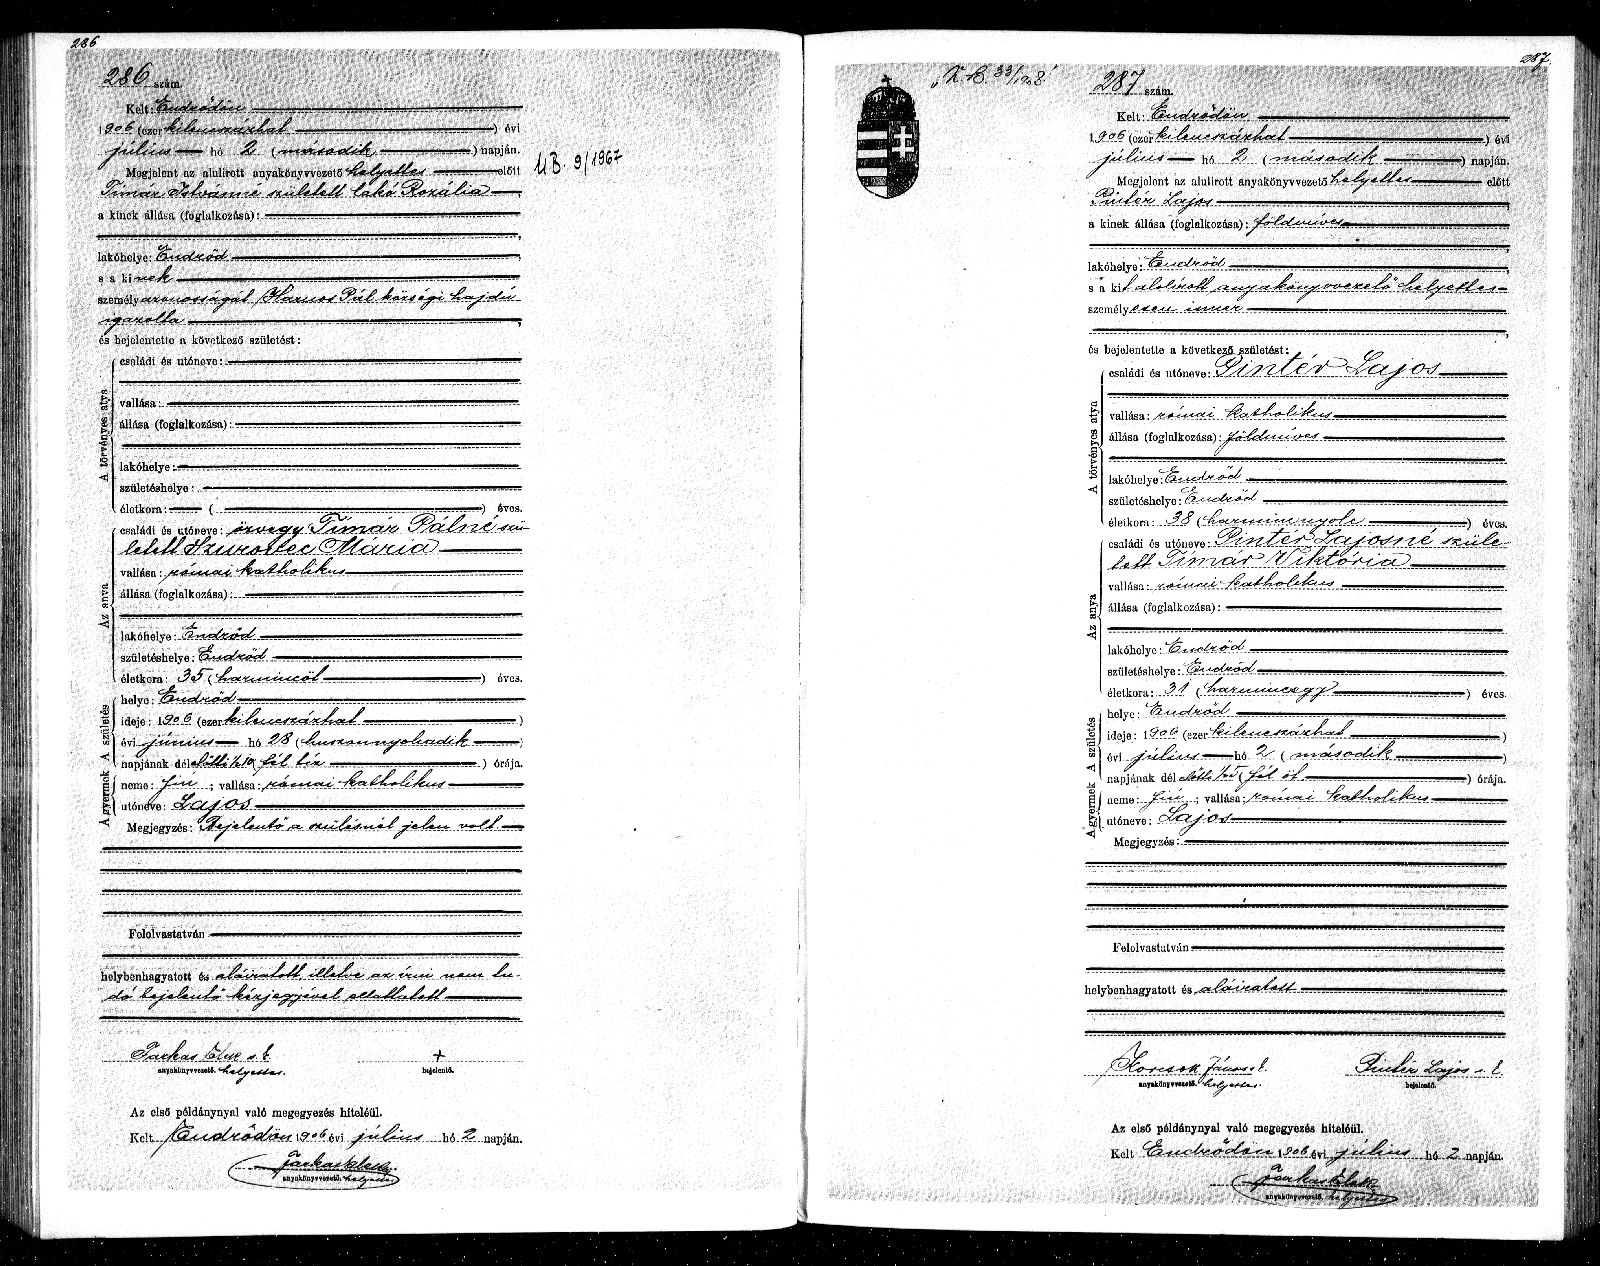 286
286 szám.
Kelt: Endrődön
1906 (ezer kilencszázhat) évi
július hó 2 (második) napján.
Megjelent az alulirott anyakönyvvezető helyettes előtt
Tímár Istvánné született Lakó Rozália
a kinek állása (foglalkozása):
lakóhelye: Endrőd
s a kinek
személyazonosságát Harnos Pál községi hajdú
igazolta
és bejelentette a következő születést:
A törvényes atya
családi és utóneve:
vallása:
állása (foglalkozása):
lakóhelye:
születéshelye:
életkora: ( ) éves.
Az anya
családi és utóneve: özvegy Tímár Pálné szü-
letett Szurovec Mária
vallása: római katholikus
állása (foglalkozása):
lakóhelye: Endrőd
születéshelye: Endrőd
életkora: 35 (harmincöt) éves.
A születés
helye: Endrőd
ideje: 1906 (ezer kilencszázhat)
évi június hó 28 (huszonnyolcadik)
napjának délelőtti ½10 (fél tíz) órája.
A gyermek
neme: fiú ; vallása: római katholikus
utóneve: Lajos
Megjegyzés: Bejelentő a szülésnél jelen volt
Felolvastatván
helybenhagyatott és aláiratott, illetve az írni nem tu-
dó bejelentő kézjegyével elláttatott
Farkas s. k. +
anyakönyvvezető helyettes. bejelentő.
Az első példánynyal való megegyezés hiteléül.
Kelt Endrődön 1906 évi július hó 2 napján.
Farkas
anyakönyvvezető. helyettes.
UB. 9/1967
287
33/1908
287 szám.
Kelt: Endrődön
1906 (ezer kilencszázhat) évi
július hó 2 (második) napján.
Megjelent az alulirott anyakönyvvezető helyettes előtt
Pintér Lajos
a kinek állása (foglalkozása): földmíves
lakóhelye: Endrőd
s a kit alólírott anyakönyvvezető helyettes
személyesen ismer
és bejelentette a következő születést:
A törvényes atya
családi és utóneve: Pintér Lajos
vallása: római katholikus
állása (foglalkozása): földmíves
lakóhelye: Endrőd
születéshelye: Endrőd
életkora: 38 (harmincnyolc) éves.
Az anya
családi és utóneve: Pintér Lajosné szüle-
tett Tímár Viktória
vallása: római katholikus
állása (foglalkozása):
lakóhelye: Endrőd
születéshelye: Endrőd
életkora: 31 (harmincegy) éves.
A születés
helye: Endrőd
ideje: 1906 (ezer kilencszázhat)
évi július hó 2 (második)
napjának délelőtti ½5 (fél öt) órája.
A gyermek
neme: fiú ; vallása: római katholikus
utóneve: Lajos
Megjegyzés:
Felolvastatván
helybenhagyatott és aláiratott
János s. k. Pintér Lajos s. k.
anyakönyvvezető. helyettes. bejelentő.
Az első példánynyal való megegyezés hiteléül.
Kelt Endrődön 1906 évi július hó 2 napján.
Farkas
anyakönyvvezető. helyettes